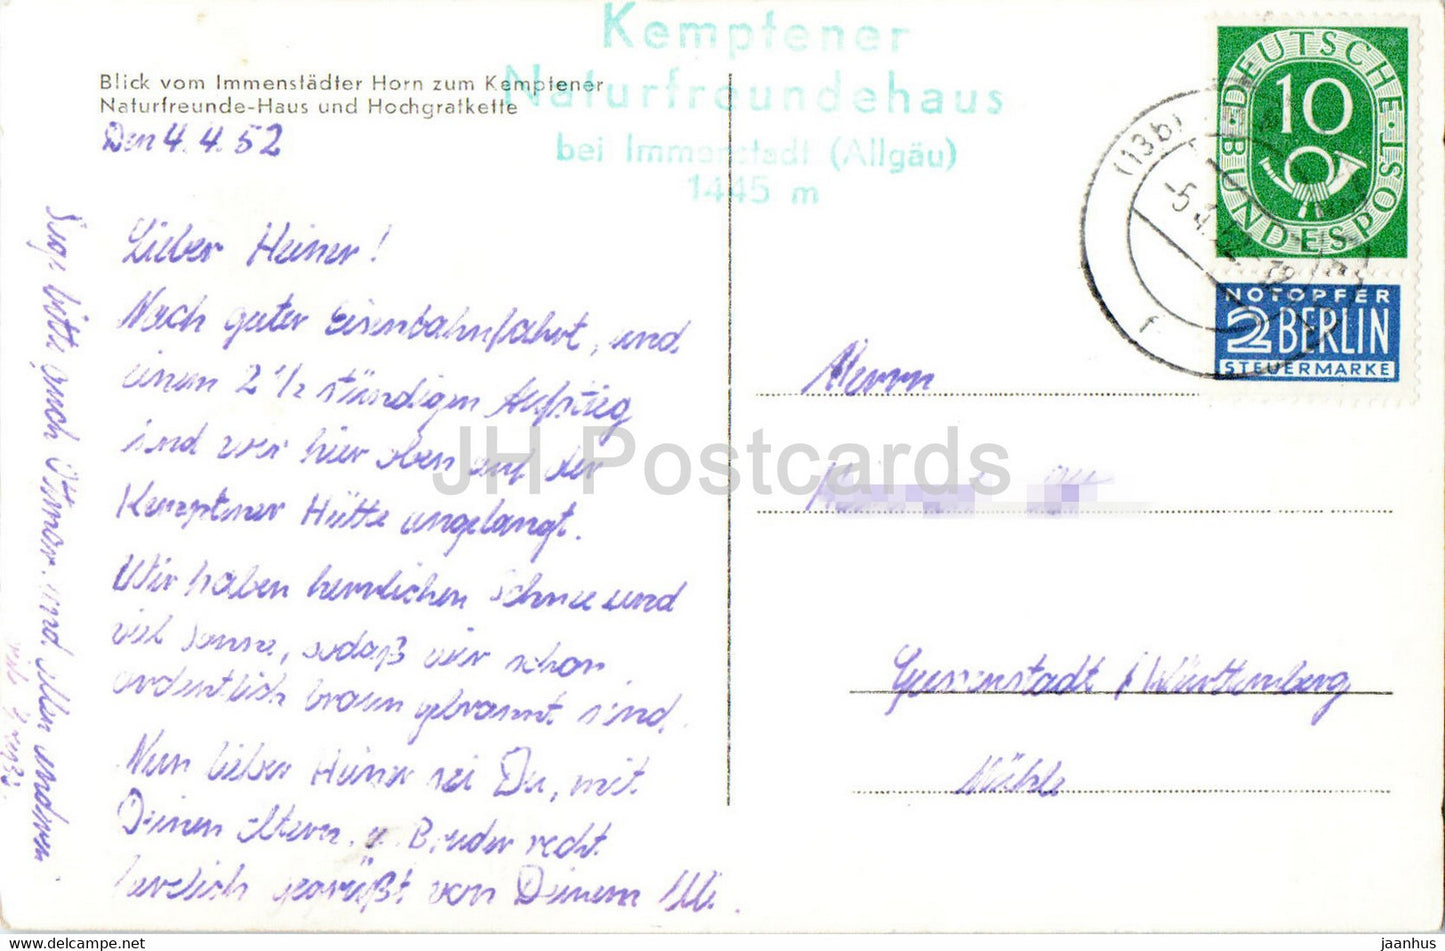 Blick vom Immenstädter Horn zum Kemptener
Naturfreunde-Haus und Hochgratkette
Kemptener
Naturfreundehaus
bei Immenstadt (Allgäu)
1445 m
DEUTSCHE BUNDESPOST
10
NOTOPFER
2 BERLIN
STEUERMARKE
(13b)
-5.4.52
Den 4. 4. 52
Lieber Heiner!
Nach guter Eisenbahnfahrt, und
einem 2 1/2 stündigen Aufstieg
sind wir hier oben auf der
Kemptener Hütte angelangt.
Wir haben herrlichen Schnee und
viel Sonne, sodaß wir schon
ordentlich braun gebrannt sind.
Nun lieber Heiner sei Du, mit
Deinen Eltern u. Bruder recht
herzlich gegrüßt von Deinem
Sage bitte auch Otmar und allen anderen
viele Grüße.
Herrn
/ Württemberg
Mühle
JH Postcards
www.delcampe.net
jaanhus